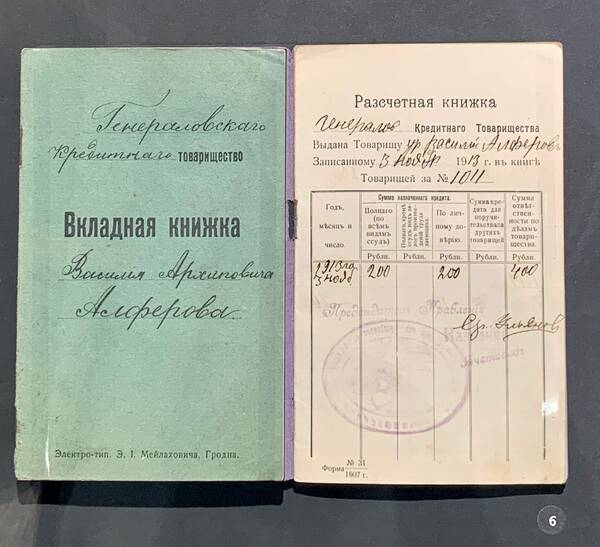 Генераловскаго
Кредитнаго товарищество
Вкладная книжка
Василья Архиповича
Алферова
Электро-тип. Э. І. Мейлаховича, Гродна.
Разсчетная книжка
Генералов Кредитнаго Товарищества
Выдана Товарищу ур. Василій Алферовъ
Записанному 3 ноября 1913 г. въ книгѣ
Товарищей за № 1011
Годъ, мѣсяцъ и число.
Сумма назначеннаго кредита.
Полнаго (по всѣмъ видамъ ссудъ)
По личному довѣрію.
Сумма кредита для поручительства за другихъ товарищей
Сумма отвѣтственности по дѣламъ товарищества.
Рубли. Рубли. Рубли. Рубли. Рубли.
1913 го 200 200 400
3 нояб
Предсѣдатель Правленія
Казначей
Форма № 31 1907 г.
6